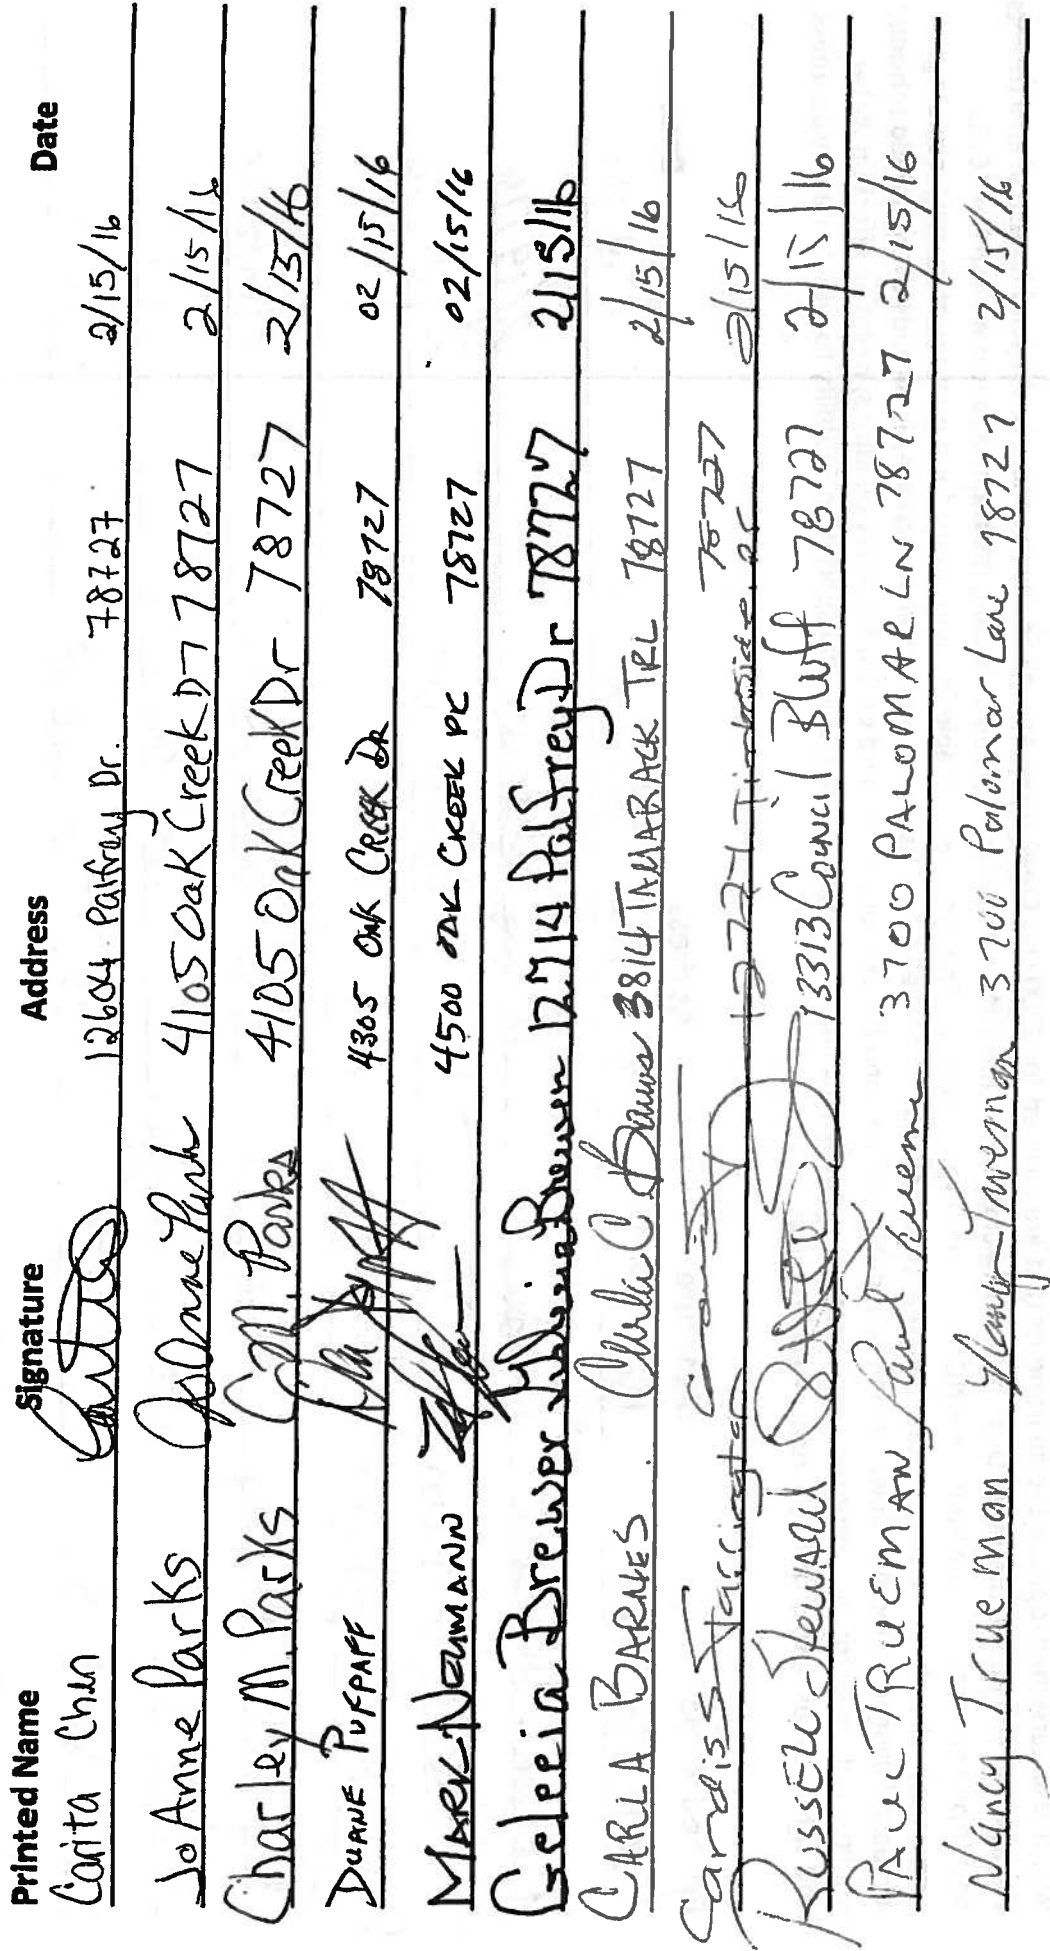 Printed Name Signature Address Date
Carita Chen 12604 Palfrey Dr. 78727 2/15/16
JoAnne Parks JoAnne Parks 4105 Oak Creek Dr 78727 2/15/16
Charley M. Parks C M. Parks 4105 Oak Creek Dr 78727 2/15/16
DUANE PUFPAFF 4305 OAK CREEK DR 78727 02/15/16
MARK NEUMANN 4500 OAK CREEK 78727 02/15/16
Brewer 12714 Palfrey Dr 78727 2/15/16
CARLA BARNES Carla C Barnes 3814 TAMARACK TRL 78727 2/15/16
Candiss Farrington 78727 2/15/16
RUSSELL STEWARD 13313 Council Bluff 78727 2/15/16
PAUL TRUEMAN Paul Trueman 3700 PALOMAR LN 78727 2/15/16
Nancy Trueman Nancy Trueman 3700 Palomar Lane 78727 2/15/16